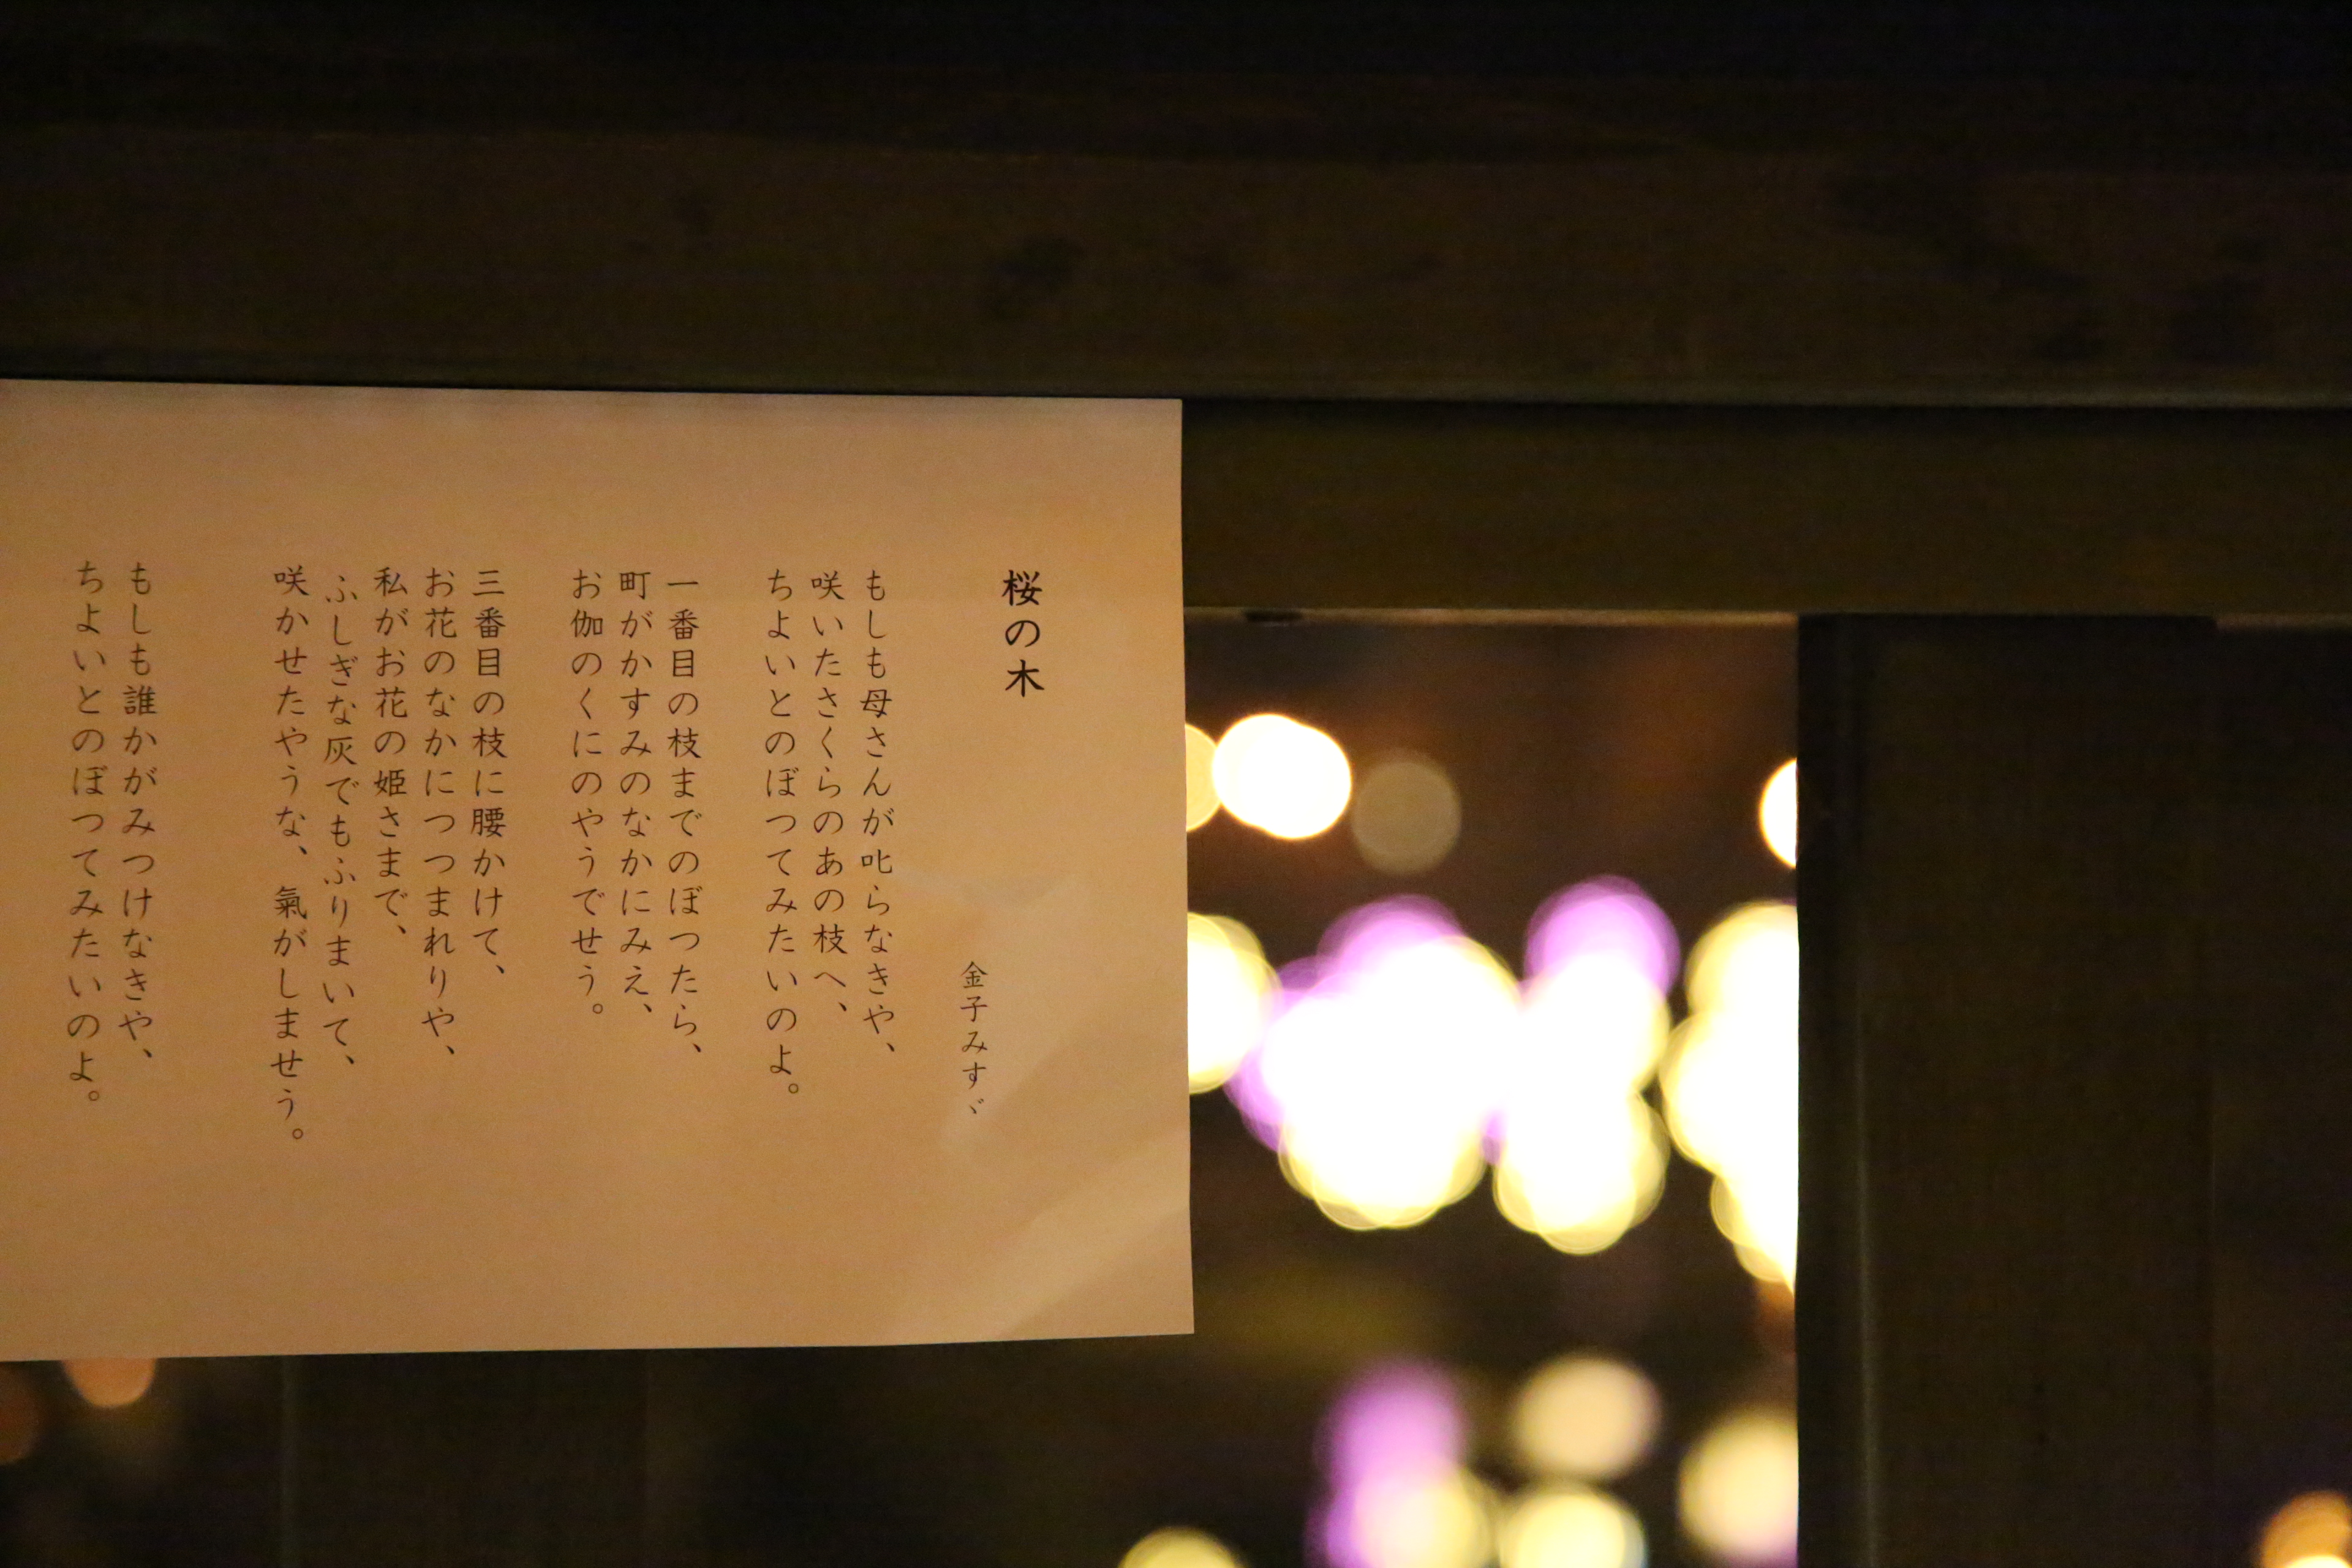 桜の木
金子みすゞ
もしも母さんが叱らなきや、
咲いたさくらのあの枝へ、
ちよいとのぼつてみたいのよ。
一番目の枝までのぼつたら、
町がかすみのなかにみえ、
お伽のくにのやうでせう。
三番目の枝に腰かけて、
お花のなかにつつまれりや、
私がお花の姫さまで、
ふしぎな灰でもふりまいて、
咲かせたやうな、氣がしませう。
もしも誰かがみつけなきや、
ちよいとのぼつてみたいのよ。